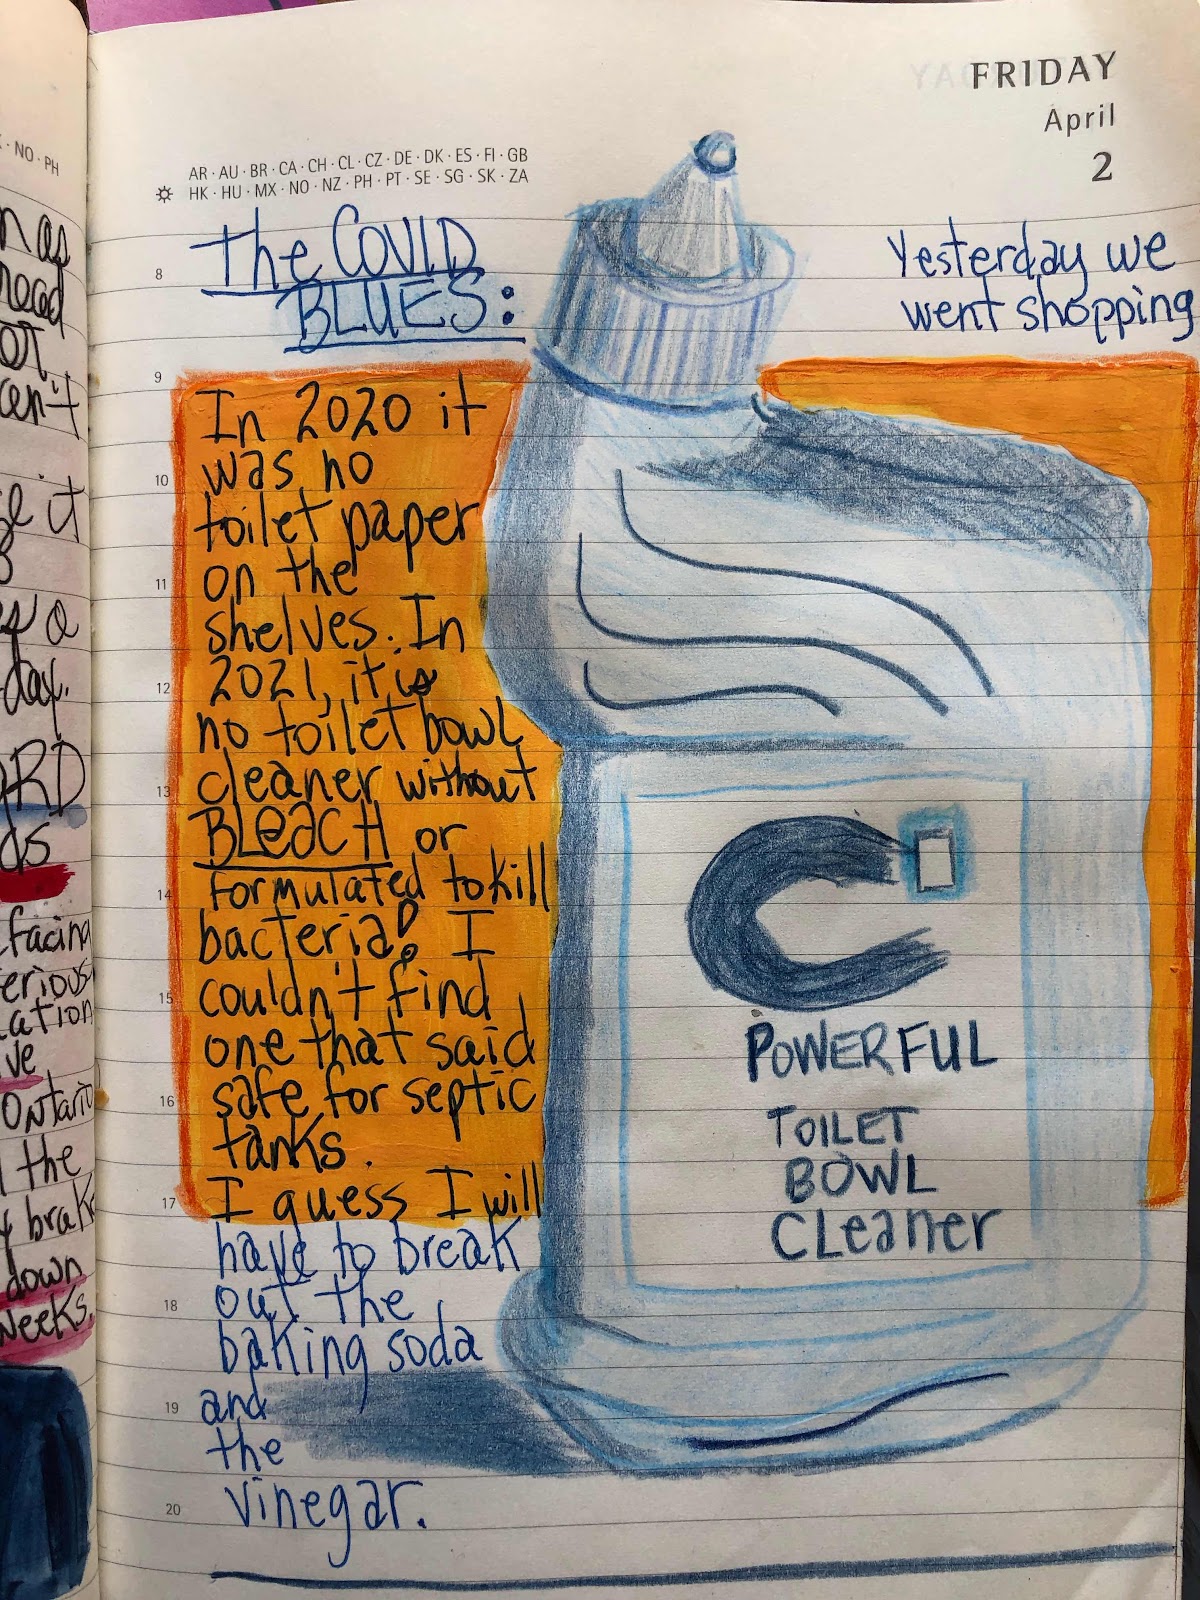 · NO · PH
n as
OT.
can't
it
a
day.
ARD
facing
ation
Ontario
the
down
weeks.
FRIDAY
April
2
AR · AU · BR · CA · CH · CL · CZ · DE · DK · ES · FI · GB
HK · HU · MX · NO · NZ · PH · PT · SE · SG · SK · ZA
the COVID
BLUES:
Yesterday we
went shopping
8
9
10
11
12
13
14
15
16
17
18
19
20
In 2020 it
was no
toilet paper
on the
shelves. In
2021, it is
no toilet bowl
cleaner without
BLeacH or
formulated to kill
bacteria! I
couldn't find
one that said
safe for septic
tanks.
I guess I will
have to break
out the
baking soda
and
the
vinegar.
POWERFUL
TOILET
BOWL
CLeaner